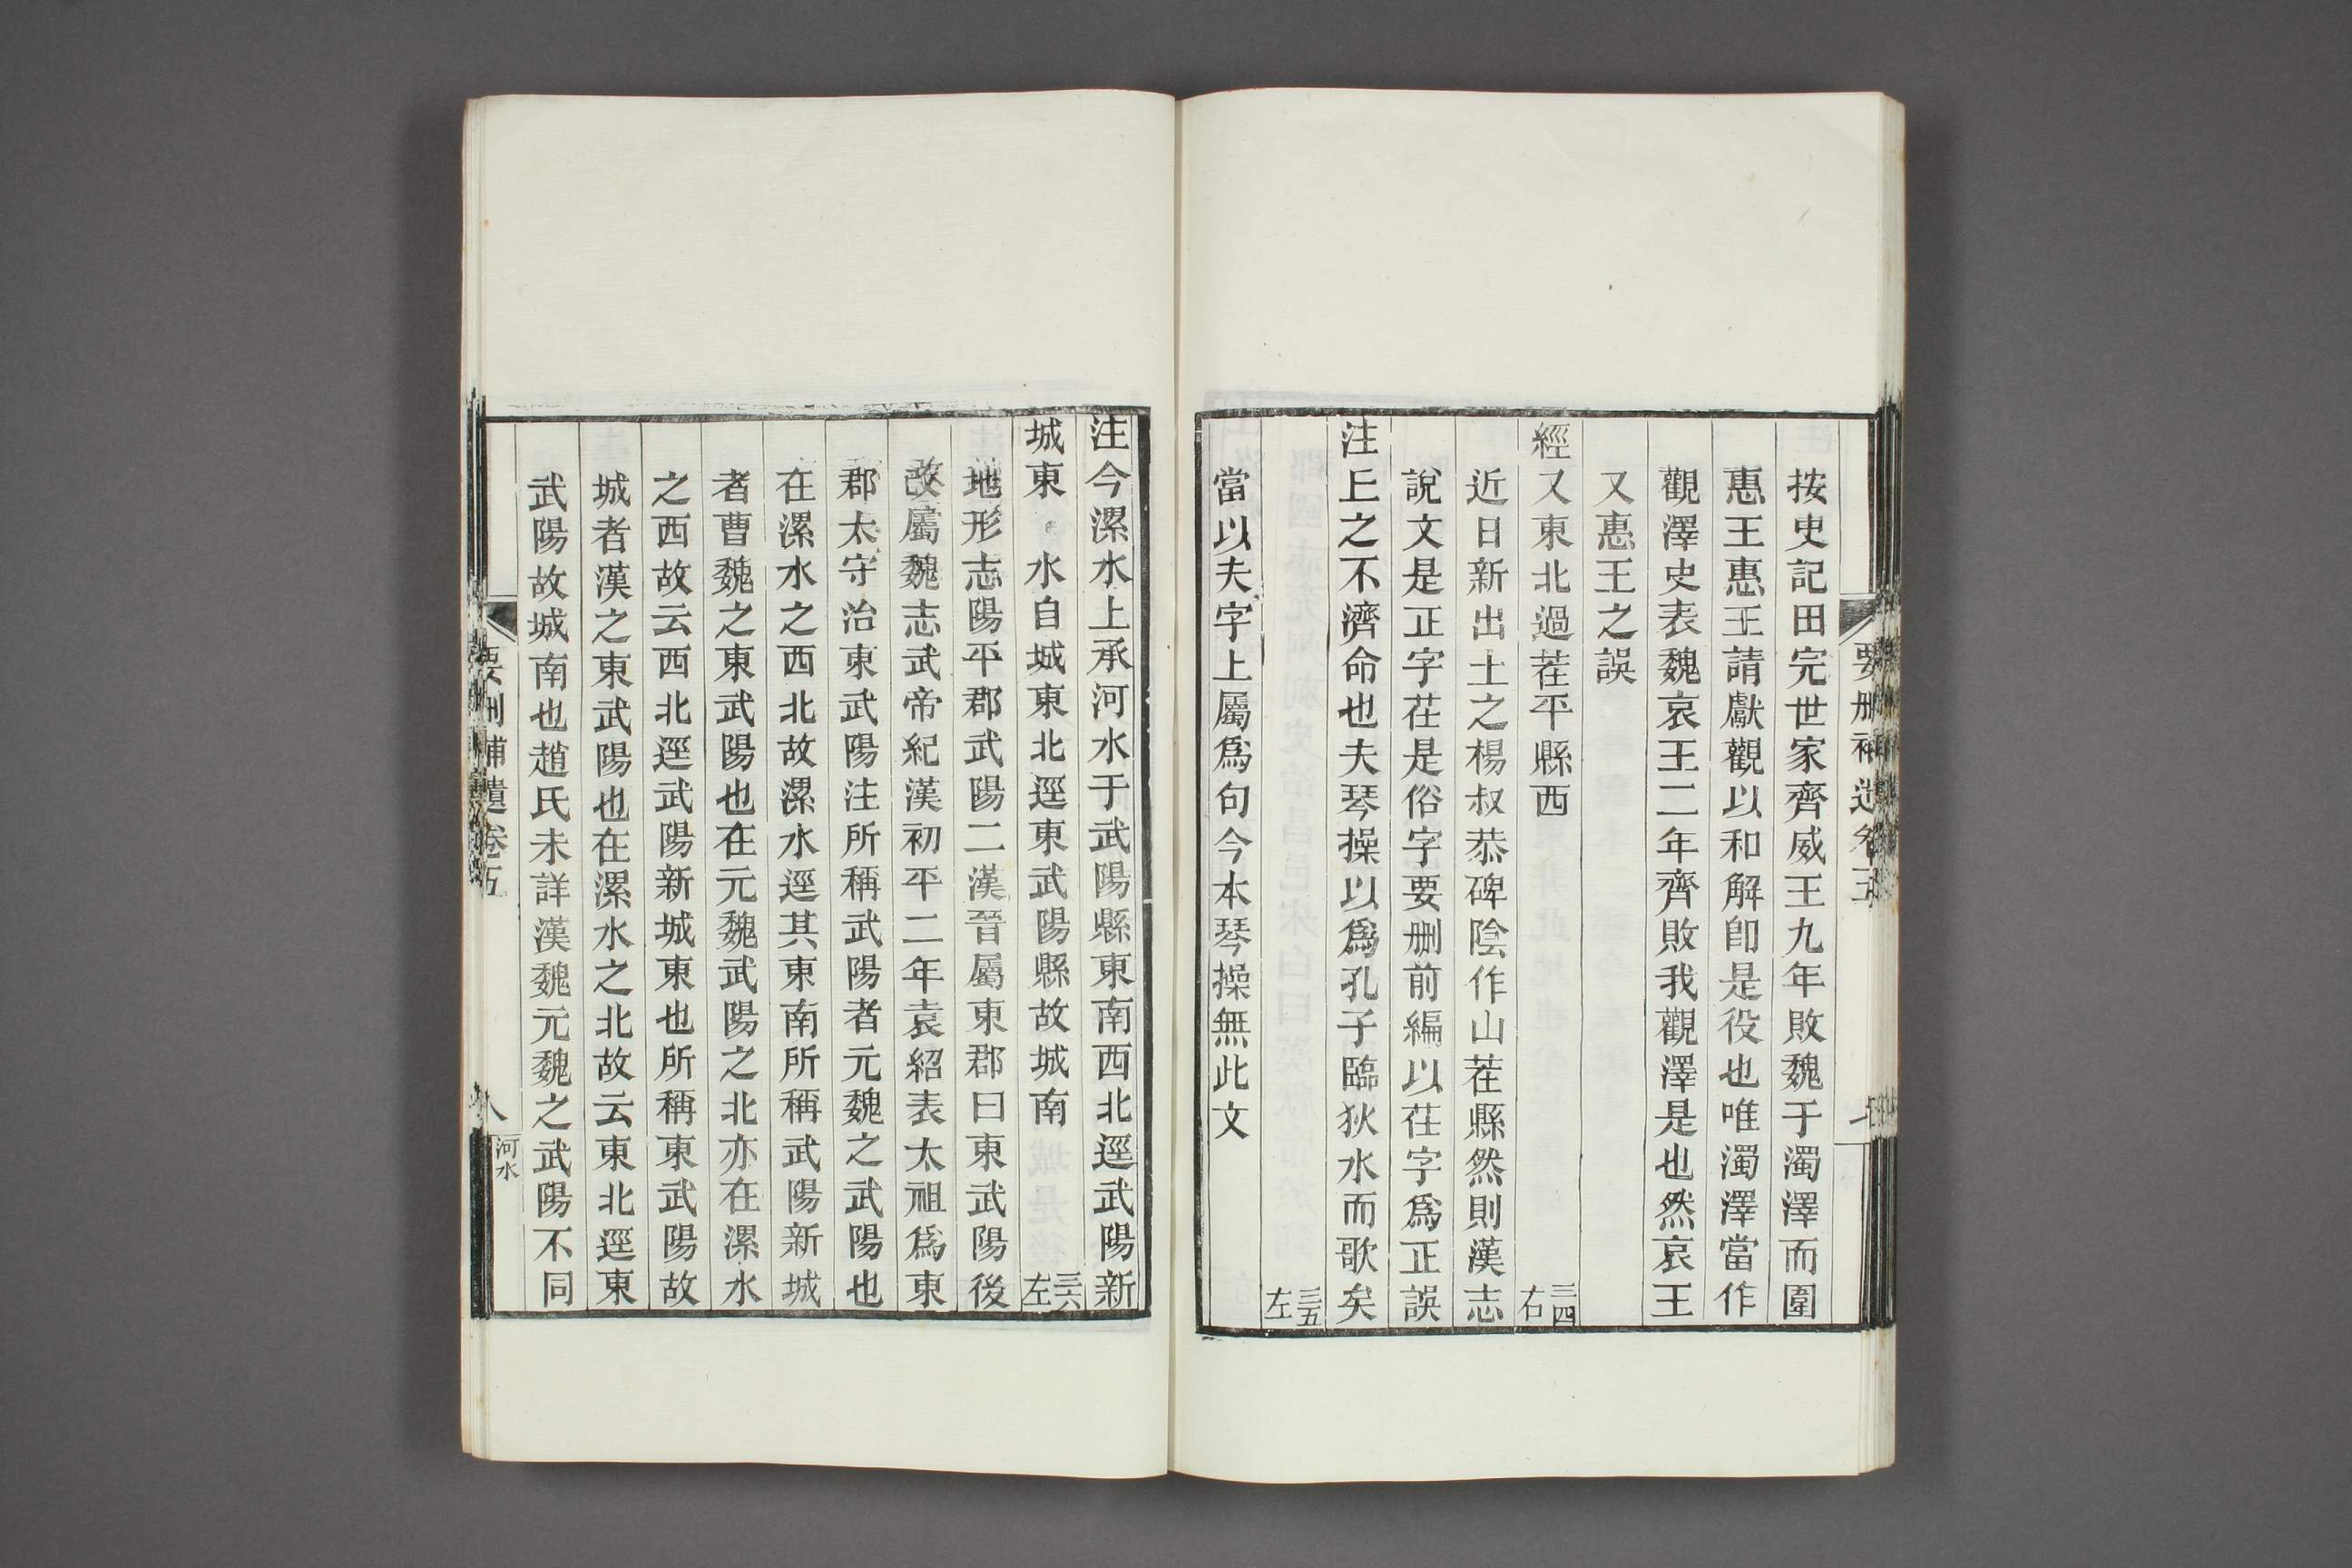 按史記田完世家齊威王九年敗魏于濁澤而圍
惠王惠王請獻觀以和解卽是役也唯濁澤當作
觀澤史表魏哀王二年齊敗我觀澤是也然哀王
又惠王之誤
經又東北過茬平縣西 三四右
近日新出土之楊叔恭碑陰作山茬縣然則漢志
說文是正字茌是俗字要刪前編以茌字爲正誤
注上之不濟命也夫琴操以爲孔子臨狄水而歌矣
三五左
當以夫字上屬爲句今本琴操無此文
要刪補遺卷五
注今漯水上承河水于武陽縣東南西北逕武陽新
城東 水自城東北逕東武陽縣故城南 三六左
地形志陽平郡武陽二漢晉屬東郡曰東武陽後
改屬魏志武帝紀漢初平二年袁紹表太祖爲東
郡太守治東武陽注所稱武陽者元魏之武陽也
在漯水之西北故漯水逕其東南所稱武陽新城
者曹魏之東武陽也在元魏武陽之北亦在漯水
之西故云西北逕武陽新城東也所稱東武陽故
城者漢之東武陽也在漯水之北故云東北逕東
武陽故城南也趙氏未詳漢魏元魏之武陽不同
要刪補遺卷五 八 河水